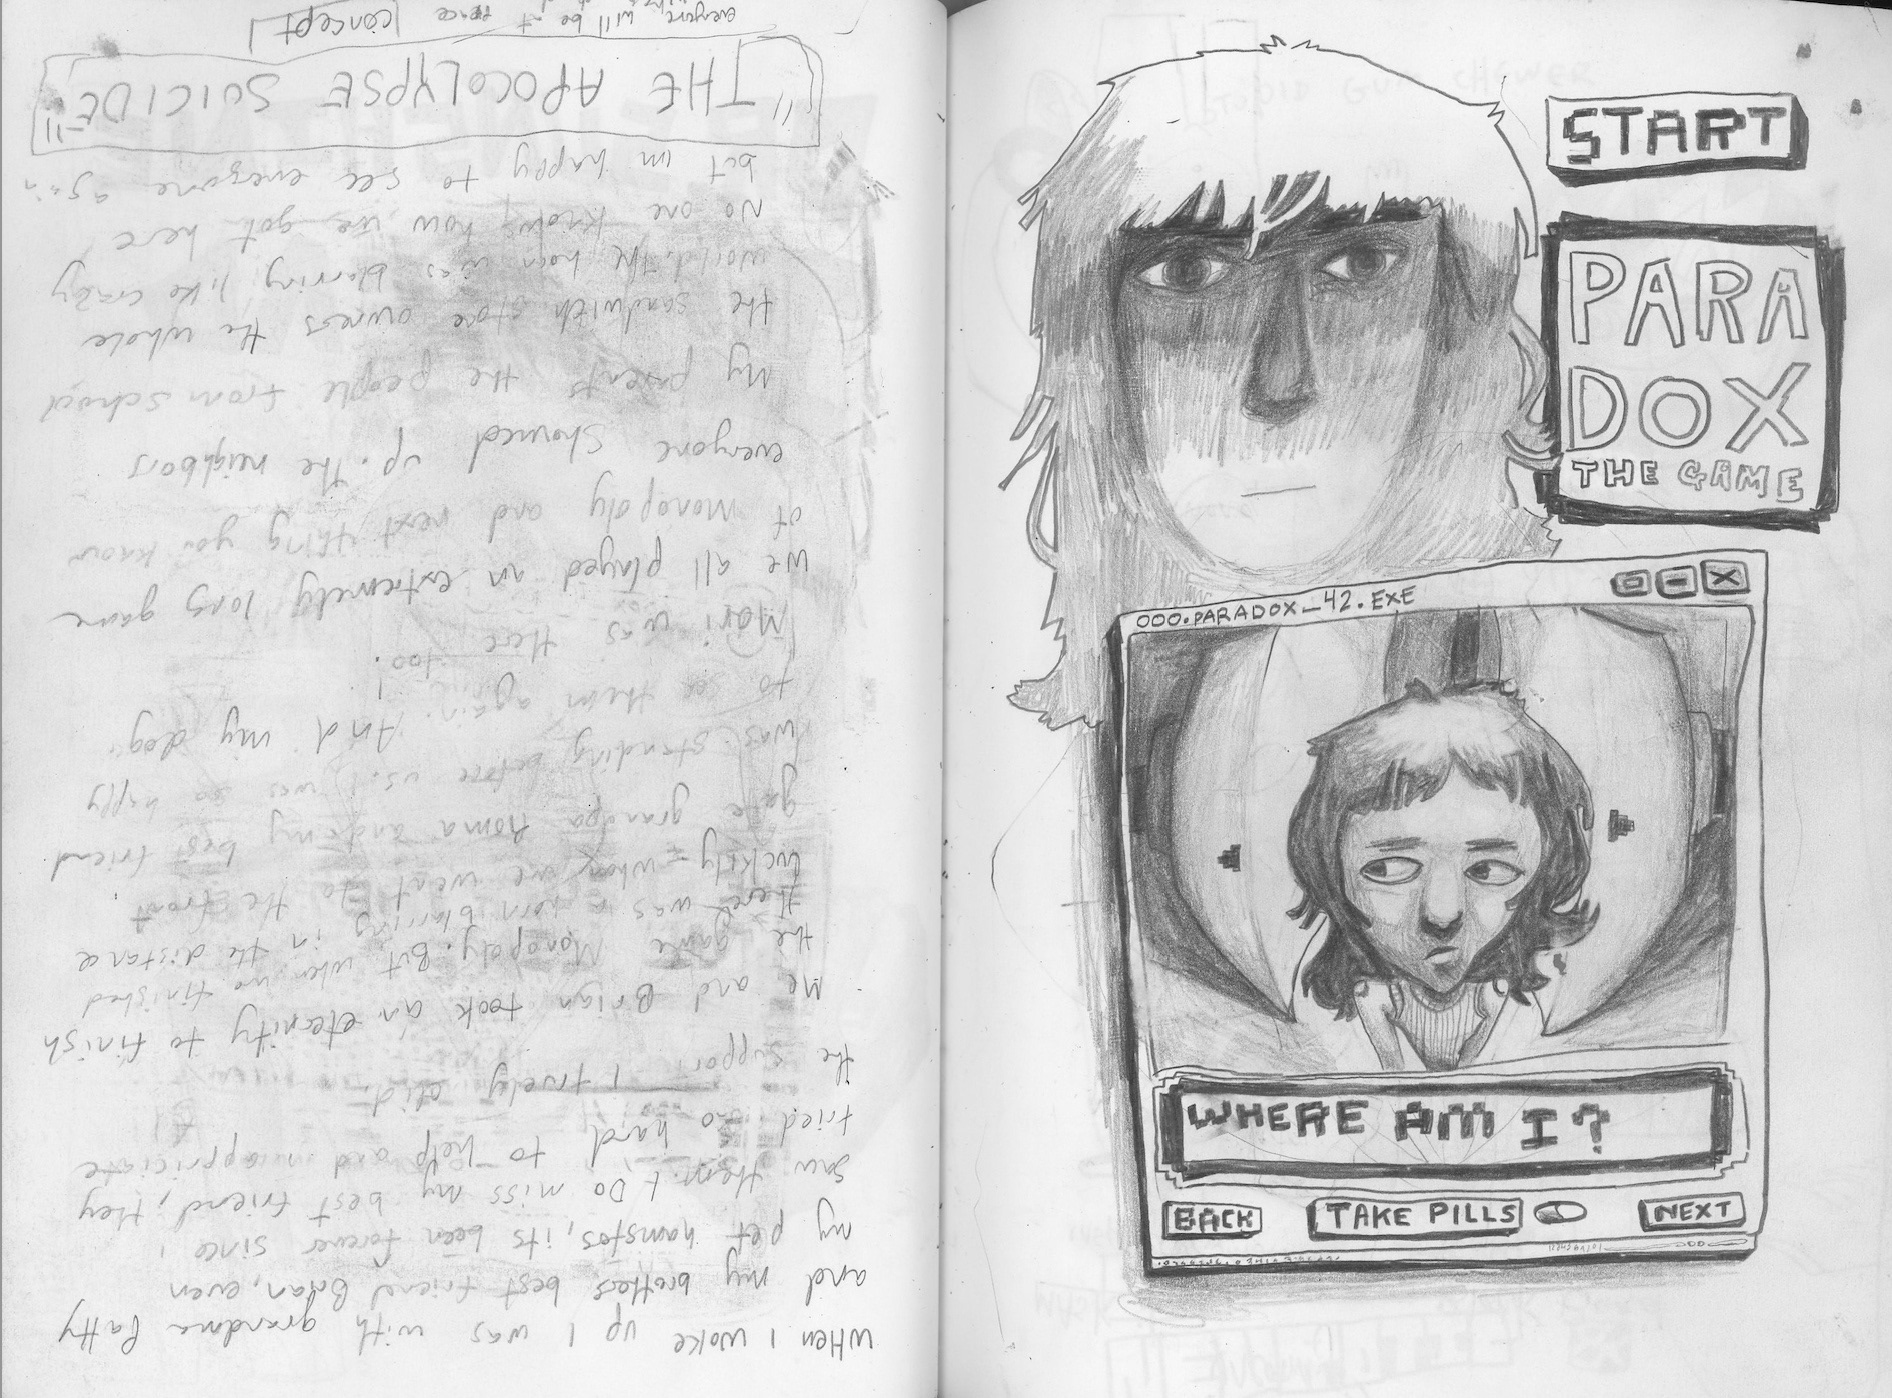 WHen I woke up I was with grandma Patty
and my brothers best friend Brian, even
my pet hamstos, its been forever since I
saw them. I Do miss my best friend, they
tried so hard to help and appriciate
the support I truely did.
Me and Brian took an eternity to finish
the game Monopoly. But when we finished
there was a horn blarring in the distance
luckily we went to the front
gate grandpa and my best friend
was standing before us. I was so happy
to see them again. And my dog!
Mari was there too.
We all played an extremely long game
of Monopoly and next thing you know
everyone showed up. The neighbors
My parents the people from school
the sandwitch store owners the whole
world. The horn was blarring like crazy
No one knows how we got here
but im happy to see everyone again
"THE APOCOLYPSE SUICIDE"
everyone will be at
[concept]
START
PARA
DOX
THE GAME
000.PARADOX_42.EXE
WHERE AM I?
BACK
TAKE PILLS
NEXT